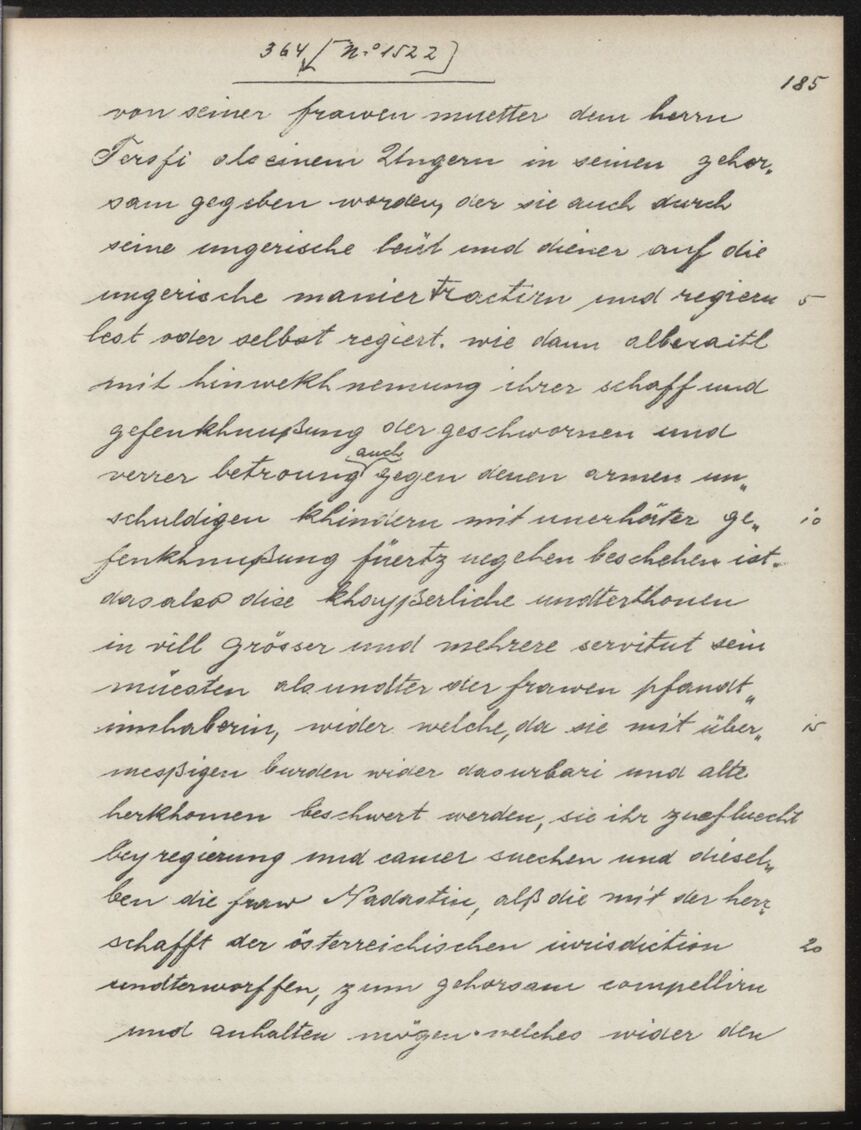 364 [N.o 1522]
185
von seiner frawen muetter dem herrn
Tersfi als einem Ungern in seinen gehor„
sam gegeben worden, der sie auch durch
seine ungerische leüt und diener auf die
ungerische manier tractirn und regiern 5
lest oder selbst regiert. wie dann alberaitl
mit hinwekhnemung ihrer schaff und
gefenkhnußung der geschwornen und
verrer betroung auch gegen denen armen un„
schuldigen khindern mit unerhörter ge„ 10
fenkhnußung füertzuegehen beschehen ist.
das also dise khayßerliche undterthonen
in vill grösser und mehrere servitut sein
müesten als undter der frawen pfandt„
innhaberin, wider welche, da sie mit über„ 15
meßigen burden wider das urbari und alte
herkhomen beschwert werden, sie ihr zuefluecht
bey regierung und camer suechen und diesel„
ben die fraw Nadastin, alß die mit der herr„
schafft der österreichischen iurisdiction 20
undterworffen, zum gehorsam compellirn
und anhalten mögen. welches wider den